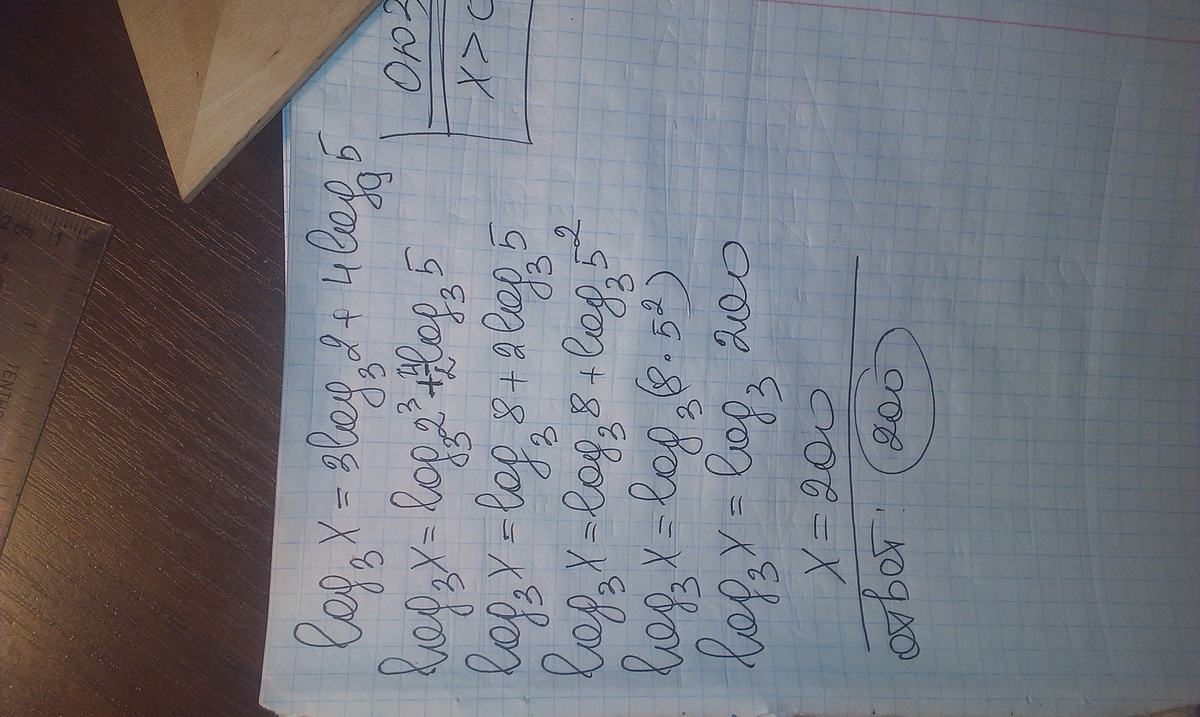 log₃x = 3log₃2 + 4log₉5
ОЮЗ
x > 0
log₃x = log₃2³ + 4/2 log₃5
log₃x = log₃8 + 2log₃5
log₃x = log₃8 + log₃5²
log₃x = log₃(8·5²)
log₃x = log₃ 200
x = 200
ответ: 200
2 cm 1